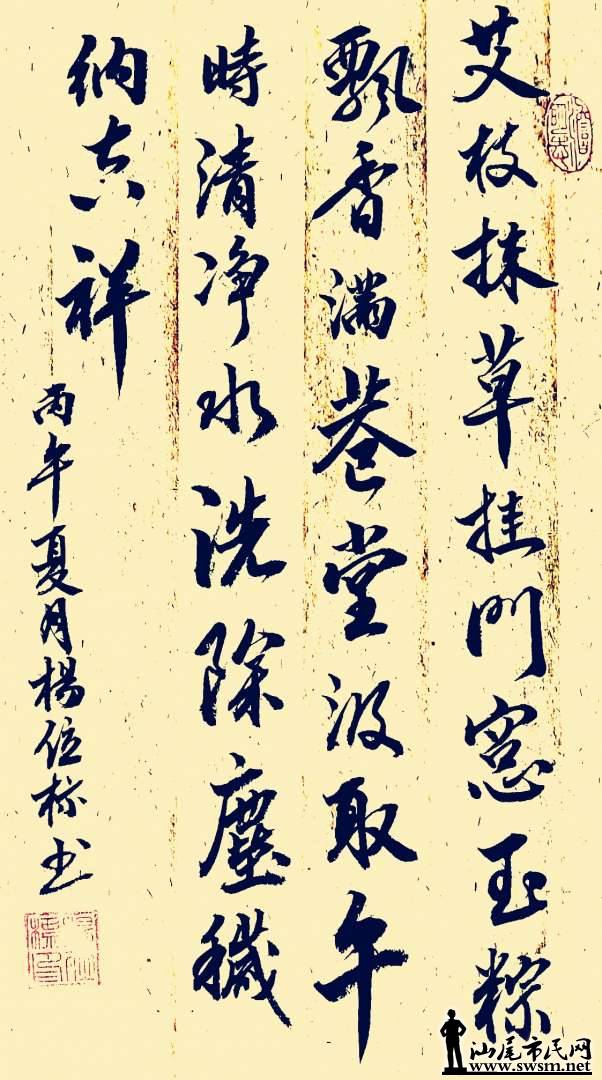 艾枝抹草挂門窓玉粽
飄香滿巷堂汲取午
時清净水洗除塵穢
納吉祥
丙午夏月楊位标书
汕尾市民网
www.swsm.net